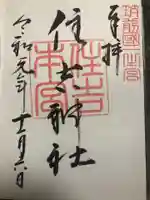 奉拝
筑前國一之宮
住吉神社
住吉本宮
令和元年十一月六日